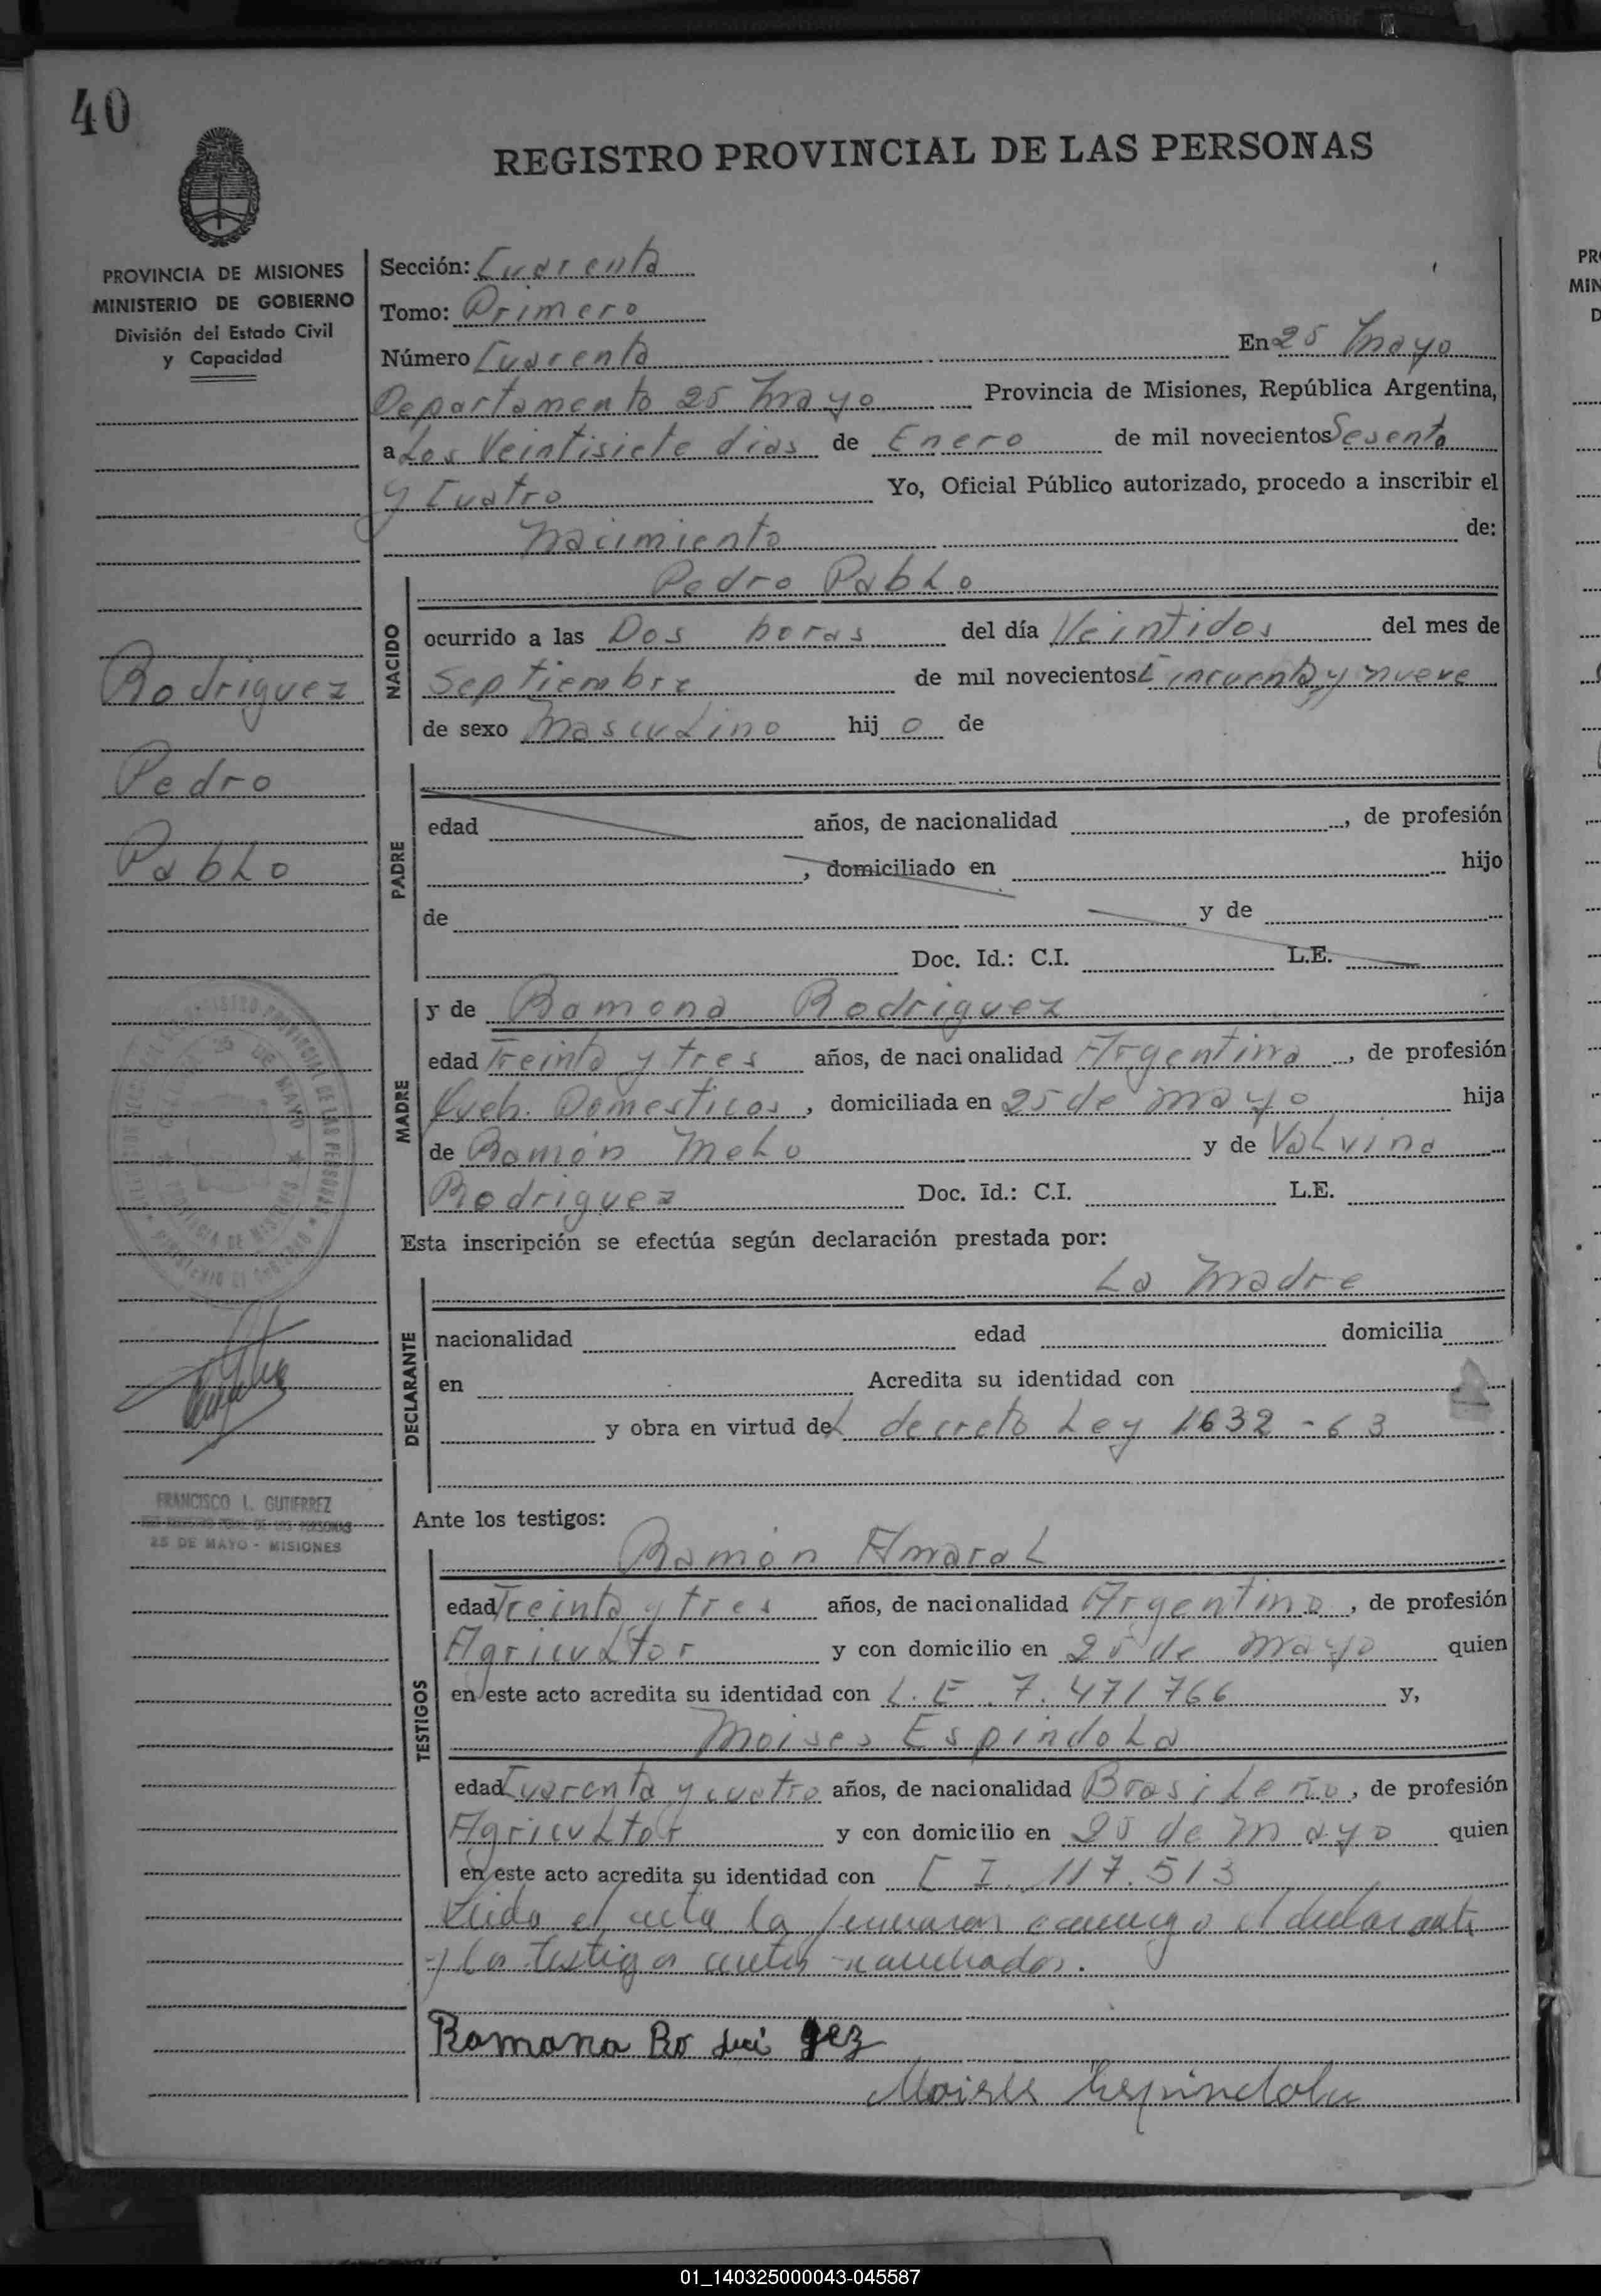 40
REGISTRO PROVINCIAL DE LAS PERSONAS
PROVINCIA DE MISIONES
MINISTERIO DE GOBIERNO
División del Estado Civil
y Capacidad
Sección: Cuarenta
Tomo: Primero
Número Cuarenta En 25 Mayo
Departamento 25 Mayo Provincia de Misiones, República Argentina,
a Los Veintisiete dias de Enero de mil novecientos Sesenta
y Cuatro Yo, Oficial Público autorizado, procedo a inscribir el
Nacimiento de:
Pedro Pablo
NACIDO
ocurrido a las Dos horas del día Veintidos del mes de
Septiembre de mil novecientos Cincuenta y nueve
de sexo Masculino hij o de
Rodriguez
Pedro
Pablo
PADRE
edad años, de nacionalidad , de profesión
, domiciliado en hijo
de y de
Doc. Id.: C.I. L.E.
MADRE
y de Ramona Rodriguez
edad Treinta y tres años, de nacionalidad Argentina , de profesión
Queh. Domesticos , domiciliada en 25 de mayo hija
de Ramón Melo y de Valvina
Rodriguez Doc. Id.: C.I. L.E.
Esta inscripción se efectúa según declaración prestada por:
La Madre
DECLARANTE
nacionalidad edad domicilia
en Acredita su identidad con
y obra en virtud del decreto Ley 1632 - 63
FRANCISCO L. GUTIERREZ
25 DE MAYO - MISIONES
Ante los testigos:
Ramón Amaral
TESTIGOS
edad Treinta y tres años, de nacionalidad Argentino , de profesión
Agricultor y con domicilio en 25 de mayo quien
en este acto acredita su identidad con L. E. 7.471766 y,
Moises Espindola
edad Cuarenta y cuatro años, de nacionalidad Brasileño , de profesión
Agricultor y con domicilio en 25 de mayo quien
en este acto acredita su identidad con C I. 117.513
Leida el acta la firmaron conmigo el declarante
y los testigos antes nombrados.
Ramona Ro dri gez
Moises Espindola
01_140325000043-045587